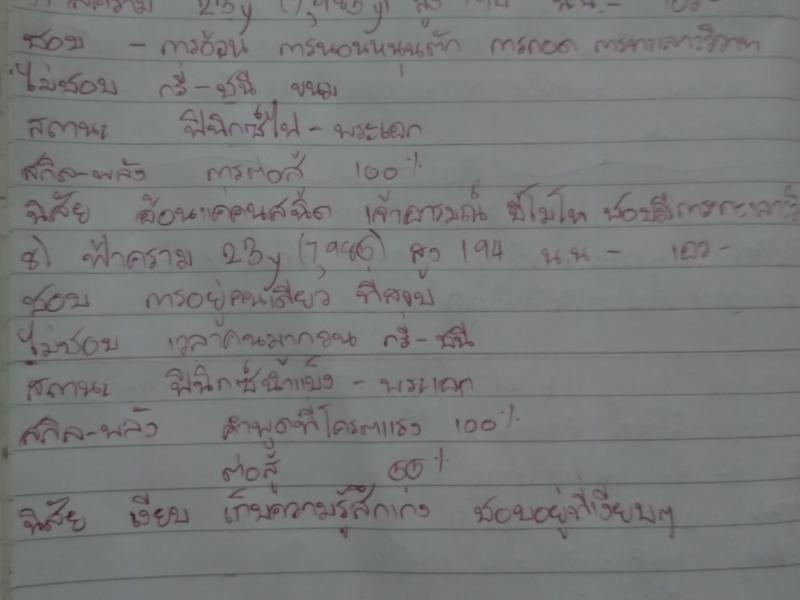 23y (7,985) สูง 194 น.น. - เอว -
ชอบ - การอ้อน การนอนหนุนตัก การกอด การทะเลาะวิวาท
ไม่ชอบ กรี๊-ชนี ขนม
สถานะ ฟินิกซ์ไฟ - พระเอก
สกิล-พลัง การต่อสู้ 100%
นิสัย อ้อนแค่คนสนิด เจ้าอารมณ์ ขี้โมโห ชอบตีการทะเลาะ
8) ฟ้าคราม 23y (7,986) สูง 194 น.น. - เอว -
ชอบ การอยู่คนเดียว ที่สงบ
ไม่ชอบ เวลาคนมากวน กรี๊-ชนี
สถานะ ฟินิกซ์น้ำแข็ง - พระเอก
สกิล-พลัง คำพูดที่โครตแรง 100%
ต่อสู้ 66%
นิสัย เงียบ เก็บความรู้สึกเก่ง ชอบอยู่ที่เงียบๆ